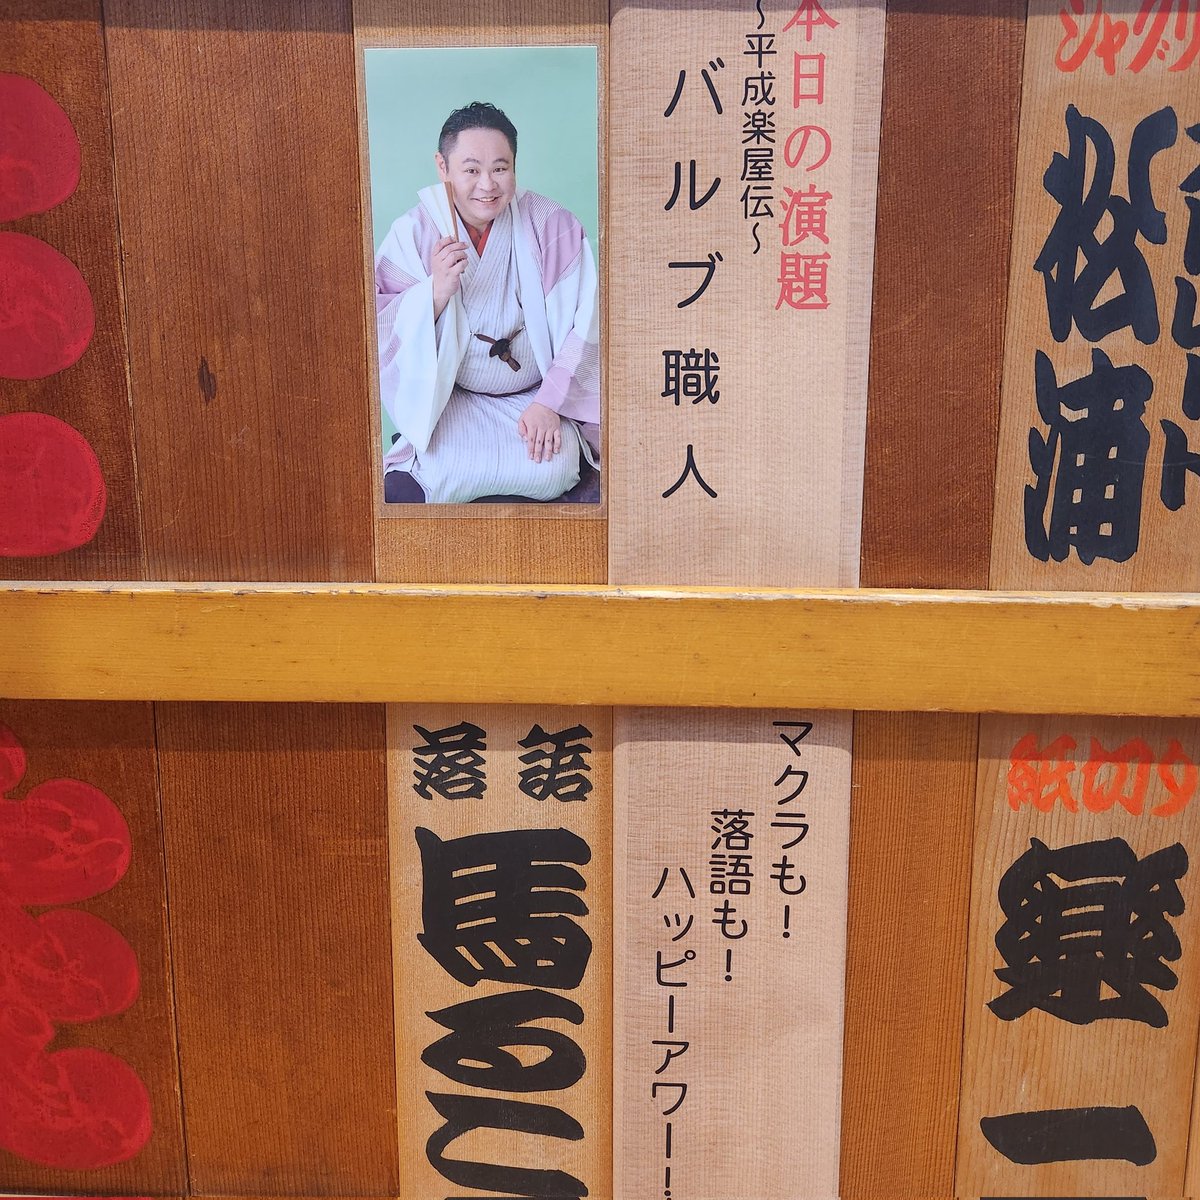 ジャグリ
松浦
本日の演題
～平成楽屋伝～
バルブ職人
紙切り
樂一
マクラも！
落語も！
ハッピーアワー！
落語
馬るこ